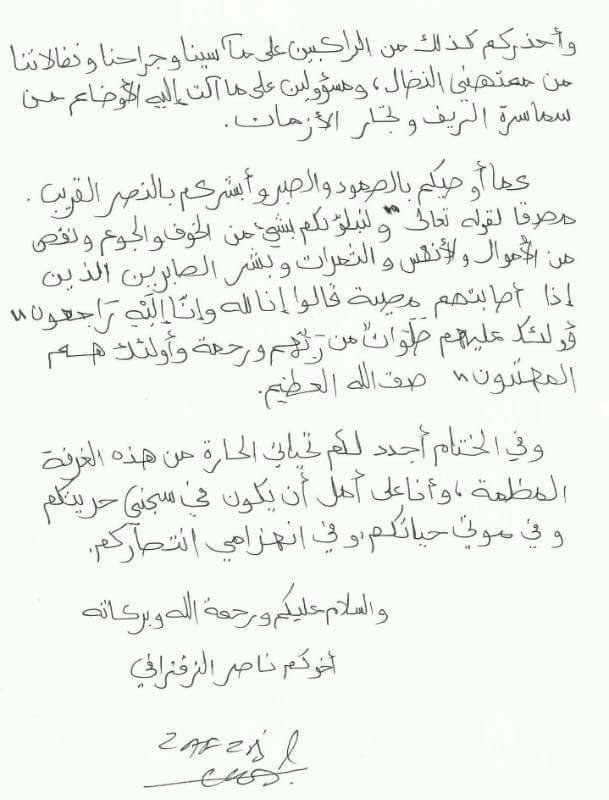 وأحذركم كذلك من الراكبين على مآسينا وجراحنا ونضالاتنا
من ممتهني النضال، ومسؤولين على ما آلت إليه الأوضاع من
سماسرة الريف وتجار الأزمات.
كما أوصيكم بالصمود والصبر وأبشركم بالنصر القريب.
مصدقا لقوله تعالى " ولنبلونكم بشيء من الخوف والجوع ونقص
من الأموال والأنفس والثمرات وبشر الصابرين الذين
إذا أصابتهم مصيبة قالوا إنا لله وإنّا إِلَيْهِ رَاجعون "
أولئك عليهم صلوَاتٌ من رَبِّهم ورحمة وأولئك هم
المهتدون " صدق الله العظيم.
وفي الختام أجدد لكم تحياتي الحارة من هذه الغرفة
المظلمة، وأنا على أمل أن يكون في سجني حريتكم
وفي موتي حياتكم، وفي انهزامي انتصاركم.
والسلام عليكم ورحمة الله وبركاته
أخوكم ناصر الزفزافي
ZAFZAFI